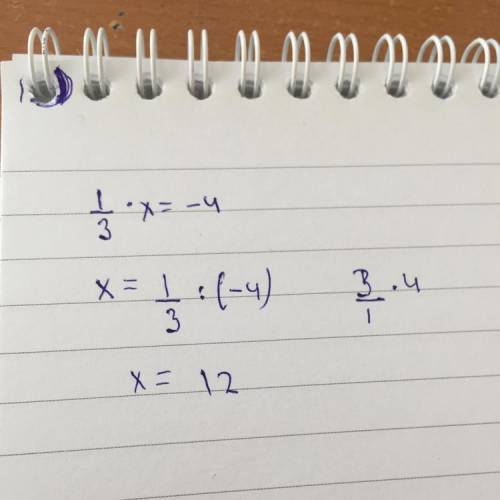 1
1/3 · x = -4
x = 1/3 : (-4) 3/1 · 4
x = 12